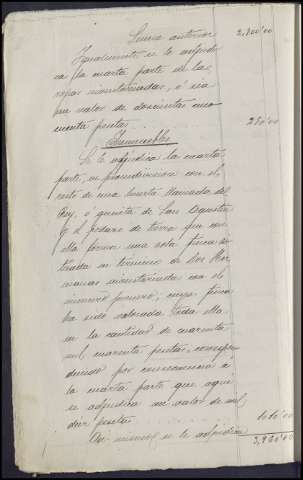 Suma anterior 2,700'00
Igualmente se le adjudi-
ca la cuarta parte de las
ropas inventariadas, ó sea
un valor de doscientas cin-
cuenta pesetas 250'00
Inmuebles
Se le adjudica la cuarta
parte, en proindivision con el
resto de una huerta llamada del
Rey, ó quinta de San Agustin
y el pedazo de tierra que con
ella forma una sola finca si-
tuada en termino de Dos Her-
manas inventariada con el
número primero, cuya finca
ha sido valorada toda ella
en la cantidad de cuarenta
mil cuarenta pesetas, correspon-
diendo por consecuencia á
la cuarta parte que aqui
se adjudica un valor de mil
diez pesetas 1010'00
Asi mismo se le adjudica 3,960'00